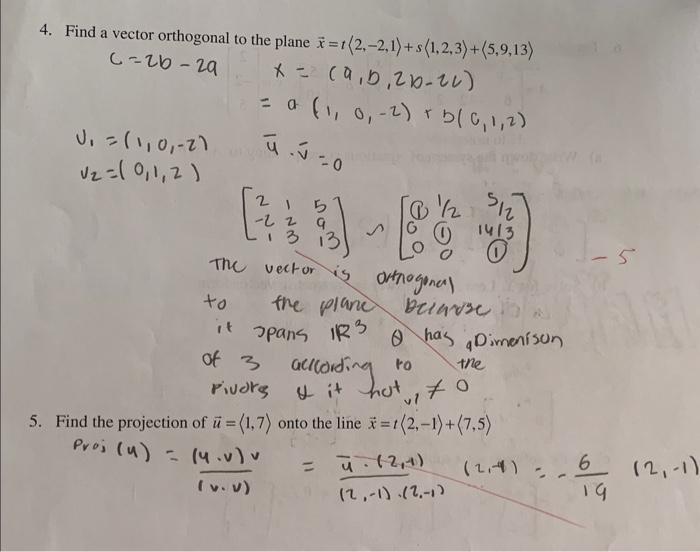 4. Find a vector orthogonal to the plane x⃗ = t⟨2,−2,1⟩ + s⟨1,2,3⟩ + ⟨5,9,13⟩
c = 2b − 2a
x = (a, b, 2b−2c)
= a (1, 0, −2) + b(0,1,2)
v₁ = (1,0,−2)
v₂ = (0,1,2)
u̅ · v̅ = 0
[2 1 5
−2 2 9
1 3 13] ~ [① 1/2 5/2
0 ① 14/3
0 0 ①]
−5
The vector is orthogonal
to the plane because
it spans ℝ³ & has a Dimenison
of 3 according to the
Pivots & it not ≠ 0
5. Find the projection of u⃗ = ⟨1,7⟩ onto the line x⃗ = t⟨2,−1⟩ + ⟨7,5⟩
Proj (u) = (u·v)v / (v·v) = u̅·(2,−1) / (2,−1)·(2,−1) (2,−1) = − 6/19 (2,−1)